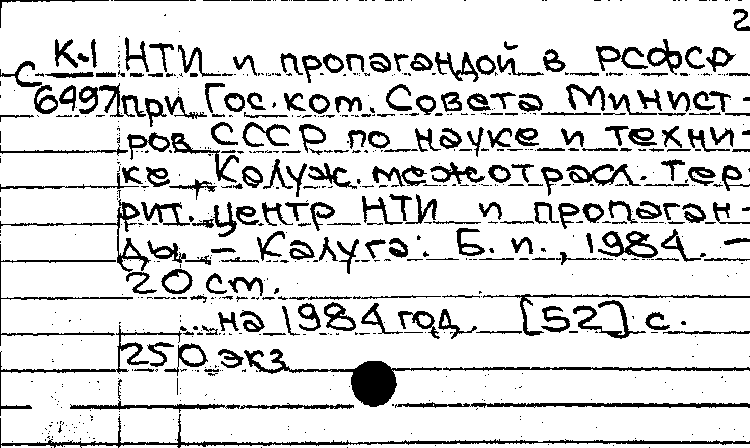 2
К-1 НТИ и пропагандой в РСФСР
С
6497 при Гос. ком. Совета Минист-
ров СССР по науке и техни-
ке, Калуж. межотрасл. тер-
рит. центр НТИ и пропаган-
ды. – Калуга: Б. и., 1984. –
20 см.
...на 1984 год. [52] с.
250 экз